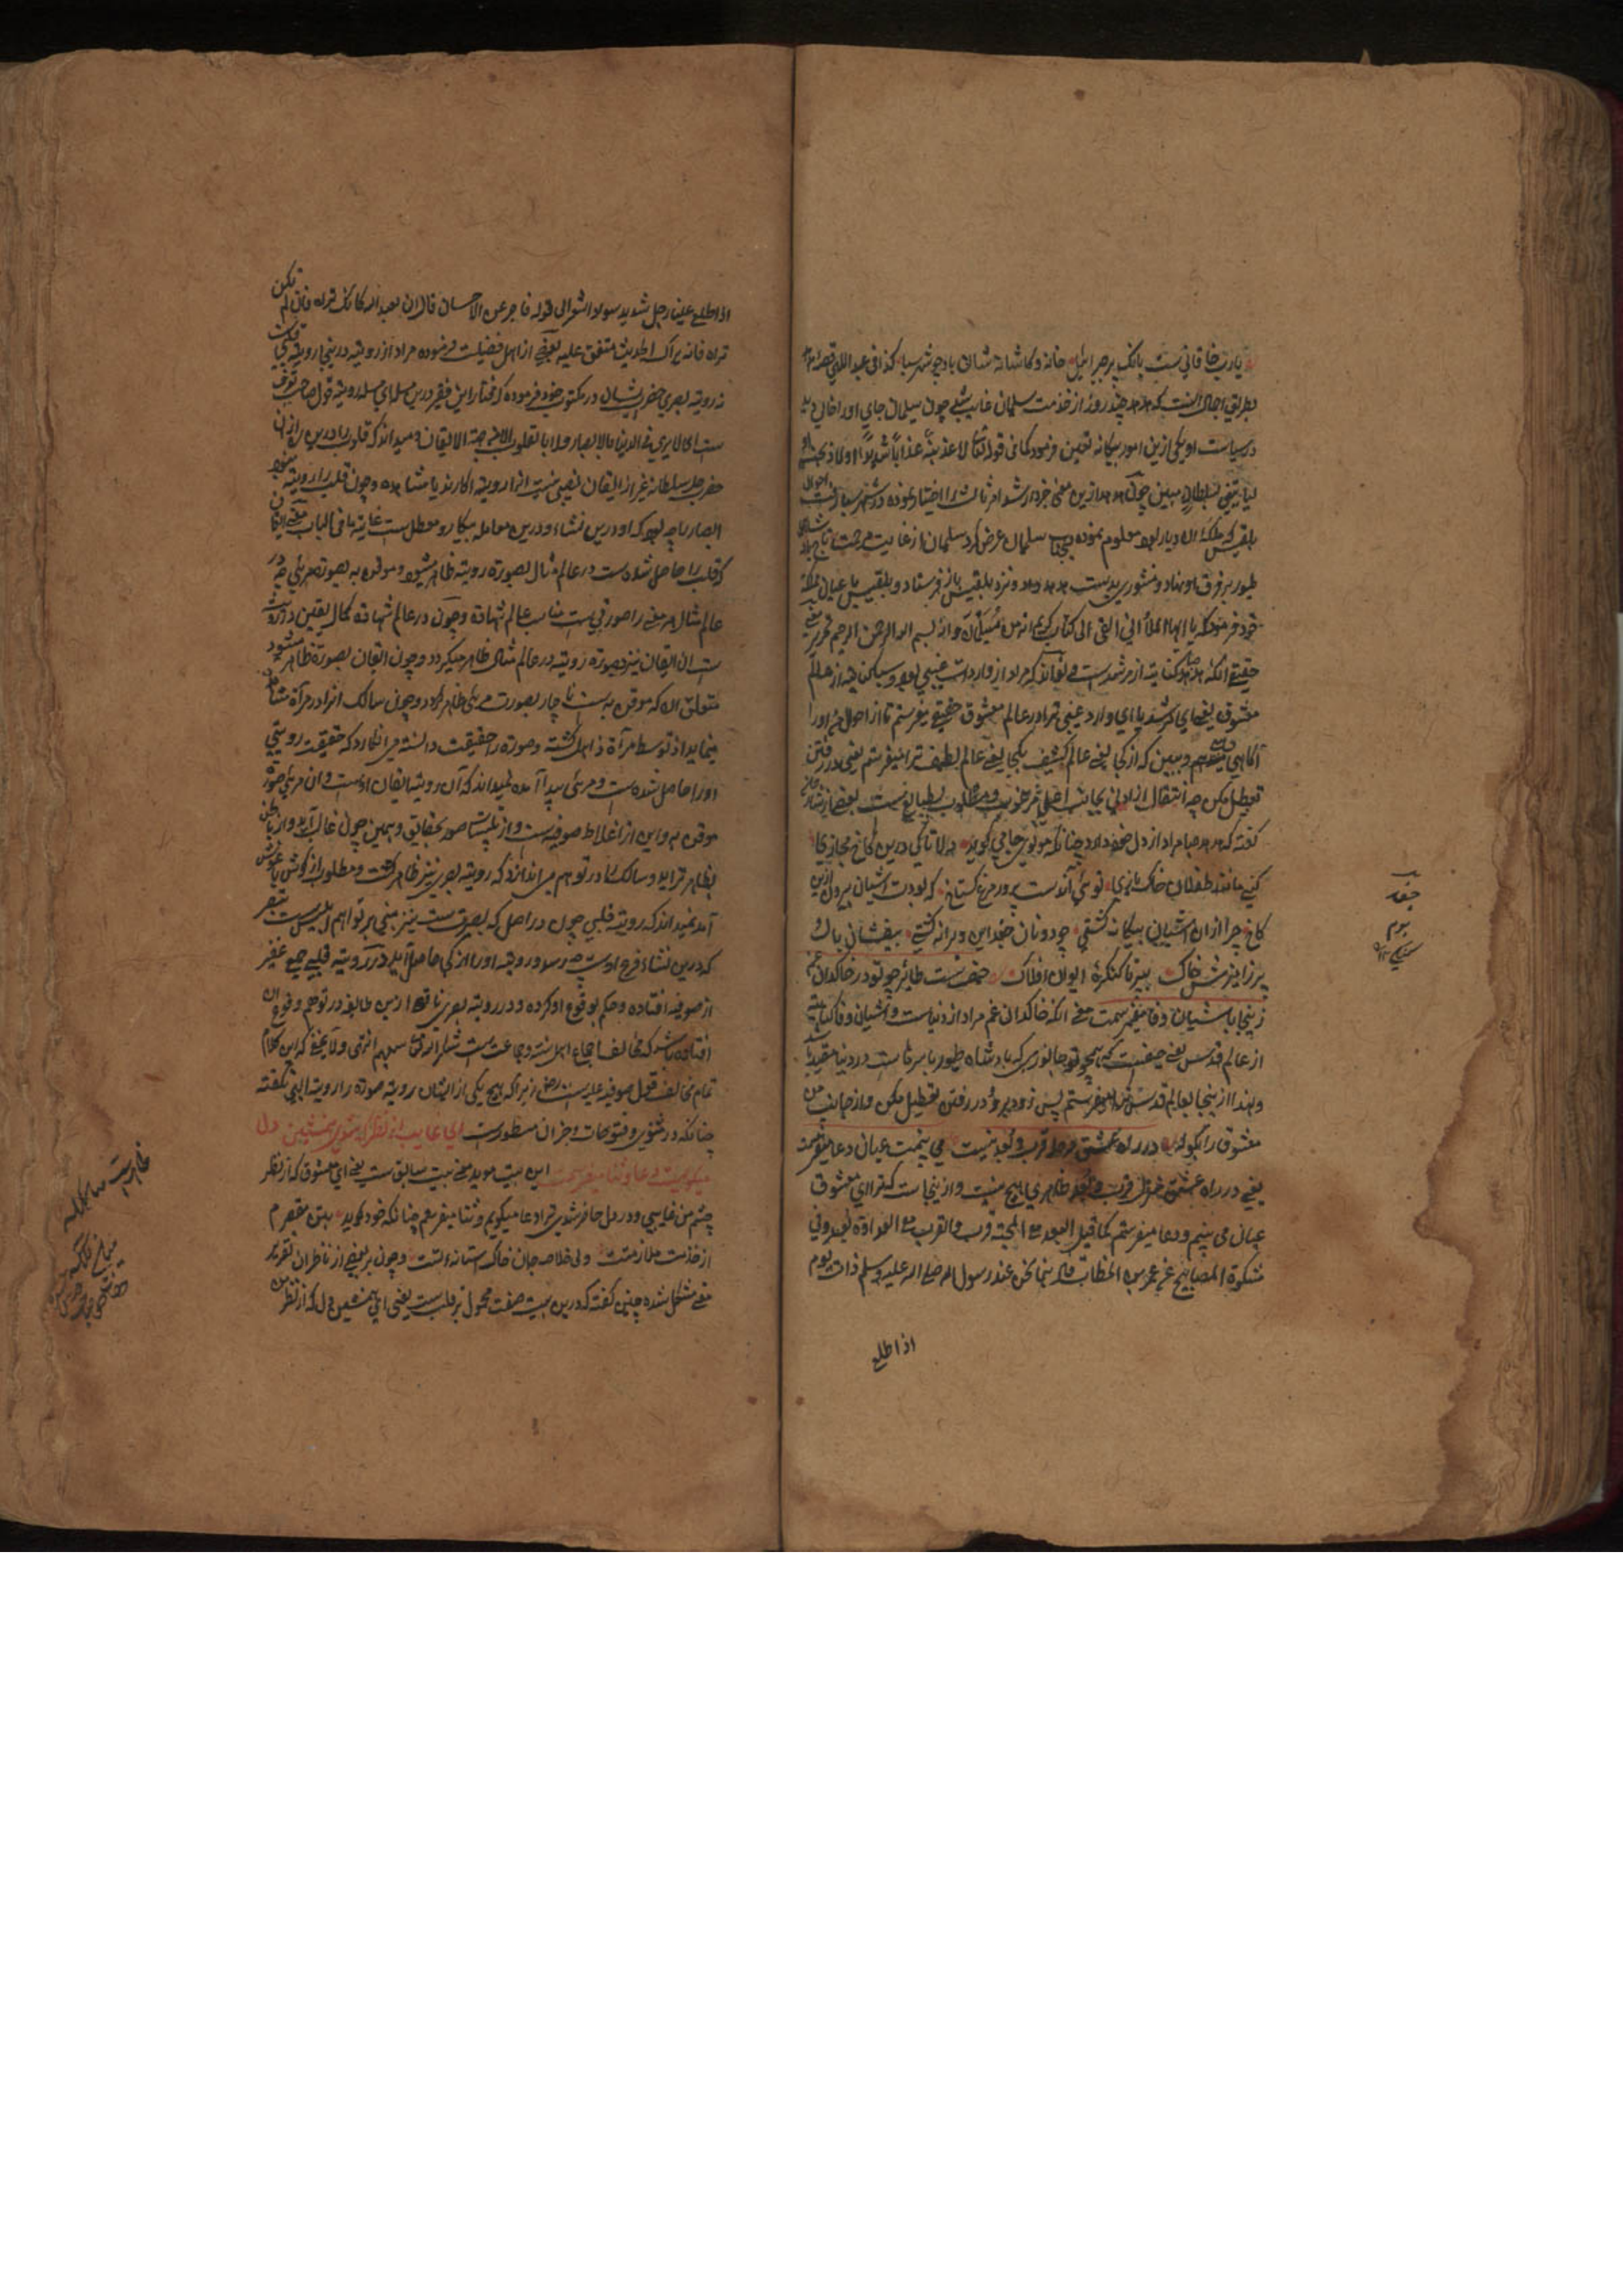 یارب خاقانی ست بانک پر جبرائیل خانه و کاشانه شان باد چو شهر سبا کذا فی عبد اللهی قصه
بطریق اجمال انست که هدهد چند روز از خدمت سلیمان غایب شد چون سلیمان جای او را خالی دید
در سیاست او یکی ازین امور سه کانه تعین فرمود کما فی قوله تعالی لاعذبنه عذابا شدیدا او لاذبحنه او
لیاتینی بسلطان مبین چون هدهد ازین معنی خبردار شد امر ثالث را اختیار نموده در شهر سبا رفت احوال
بلقیس که ملکه ان دیار بود معلوم نموده بجناب سلیمان عرض کرد سلیمان از غایت مرحمت تاج شاهی
طیور بر فرق او نهاد و منشوری بدست هدهد داده نزد بلقیس باز فرستاد و بلقیس با عیان مملکت
خود فرمود که یا ایها الملأ انی القی الی کتاب کریم انه من سلیمان وانه بسم الله الرحمن الرحیم
حقیقی انکه هدهد صبا کنایة از مرشد ست می تواند که مراد از واردات غیبی بود و سبا کنایة از عالم
معشوق یعنی ای مرشد یا ای وارد غیبی ترا در عالم معشوق حقیقی میفرستم تا از احوال من او را
آکاهی دهی و ببین که از کجا یعنی عالم کثیف بکجا یعنی عالم لطیف ترا میفرستم یعنی در رفتن
تعطیل مکن چه انتقال از ادنی بجانب اعلی مرغوب و مطلوب طبایع ست بعضی از شارحان
کفته که هدهد صبا مراد از دل خود دارد چنانکه مولوی جامی کوید دلا تا کی درین کاخ مجازی
کنی مانند طفلان خاک بازی توئی آن دست پرور مرغ کستاخ که بودت اشیان بیرون ازین
کاخ چرا ازان اشیان بیکانه کشتی چو دونان جغد این ویرانه کشتی بیفشان بال و
پر ز آمیزش خاک بپر تا کنکره ایوان افلاک حیف ست طایر چو تو در خاکدان غم
زینجا باشیان وفا میفرستمت معنی انکه خاکدان غم مراد از دنیا ست و اشیان وفا کنایة
از عالم قدس یعنی حیفست که همچو تو جانوری که بادشاه طیور باسرها ست در دنیا مقید باشد
و لهذا از ینجا بعالم قدس ترا میفرستم پس زود برو و در رفتن تعطیل مکن و از جانب من
معشوق را بکو در راه عشق مرحله قرب و بعد نیست می بینمت عیان و دعا میفرستمت
یعنی در راه عشق مرحله قرب و بعد ظاهری هیچ نیست و از ینجا ست که ترا ای معشوق
عیان می بینم و دعا میفرستم کما قیل البعد مع المحبة قرب والقرب مع العداوة بعد و فی
مشکوة المصابیح عن عمر بن الخطاب قال بینما نحن عند رسول الله صلی الله علیه وسلم ذات یوم
اذا طلع
جغد
بوم
اذا طلع علینا رجل شدید سواد الشعر الی قوله فاخبرعن الاحسان قال ان تعبد الله کانک تراه فان لم تکن
تراه فانه یراک الحدیث متفق علیه بعضی از اهل فضیلت فرموده مراد از رویة درینجا رویة قلبی ست
نه رویة بصری حضرت ایشان در مکتوب خود فرموده که مختار این فقیر درین مسله رویة قول صاحب تعرف
ست ای لا یری فی الدنیا بالابصار ولا بالقلوب الا من جهة الایقان و میداند که قلوب را درین
حضرت جل سلطانه غیر از ایقان نصیبی نیست انرا رویة انکارند یا مشاهده و چون قلب را رویة نبود
ابصار را چه بود که او درین نشاء درین معامله بیکار و معطل ست غایة ما فی الباب معنی ایقان
که قلب را حاصل شده ست در عالم مثال بصورة رویة ظاهر میشود و موقن به بصورة مرئی چه در
عالم مثال هر معنی را صورتی ست مناسب عالم شهادة و چون در عالم شهادة کمال یقین در رویة
ست ان ایقان نیز بصورة رویة در عالم مثال ظاهر میکردد و چون ایقان بصورة ظاهر میشود
متعلق ان که موقن به ست ناچار بصورت مرئی ظاهر کردد و چون سالک انرا در مرآة مثال
مینماید از توسط مرآة ذاهل کشته و صورة را حقیقت دانسته می انکارد که حقیقت رویتی
او را حاصل شده ست و مرئی پیدا آمده نمیداند که آن رویة ایقان اوست و ان مرئی صورة
موقن به و این از اغلاط صوفیه ست و از تلبیسات صور بحقایق و همین چون غالب آید و از باطن
بظاهر تراید و سالک را در توهم می اندازد که رویة بصری نیز ظاهر کشت و مطلوب از کوش باغوش
آمد نمیداند که رویة قلبی چون در اصل که بصیرت ست نیز مبنی بر توهم و تلبیس ست ببصر
که درین نشاء فرع اوست چه رسد و رویة او را از کجا حاصل آید در رویة قلبی جمعی غفیر
از صوفیه افتاده و حکم بوقوع او کرده و در رویة بصری ناقص ازین طایفه در توهم وقوع ان
افتاده باشد که مخالف اجماع اهل سنت و جماعت ست شکر الله تعالی سعیهم انتهی و لا یخفی که این کلام
تمام مخالف قول صوفیه علیه ست زیرا که هیچ یکی از ایشان رویة صورة را رویة الهی نکفته
چنانکه در مثنوی و فتوحات و جزان مسطور ست ای غایب از نظر که شدی همنشین دل
میکویمت دعا و ثنا میفرستمت این بیت موید معنی بیت سابق ست یعنی ای معشوق که از نظر
چشم من غایبی و در دل حاضر شدی ترا دعا میکویم و ثنا میفرستم چنانکه خود کوید بتن مقصرم
از خدمت ملازمتت ولی خلاصه جان خاک استانه تست و چون بر بعضی از ناظران تقریر
معنی مشکل شده چنین کفته که درین بیت صفت محمول بر قلب ست یعنی ای همنشین دل که از نظر من